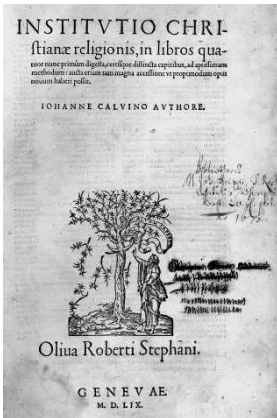 INSTITVTIO CHRI-
stianæ religionis, in libros qua-
tuor nunc primùm digesta, certísque distincta capitibus, ad aptissimam
methodum: aucta etiam tam magna accessione vt propemodum opus
nouum haberi possit.
IOHANNE CALVINO AVTHORE.
Oliua Roberti Stephani.
GENEVAE.
M. D. LIX.